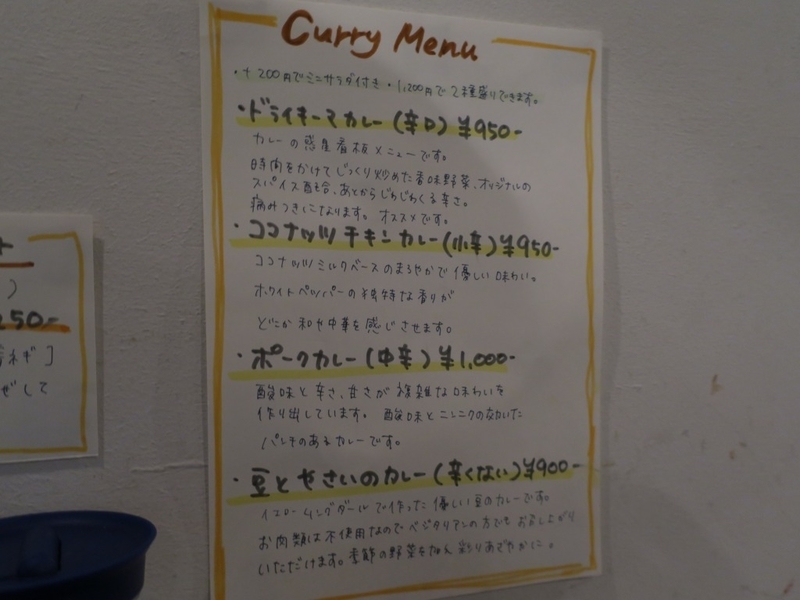 Curry Menu
・+200円でミニサラダ付き ・1,200円で2種盛りできます。
・ドライキーマカレー(辛口) ¥950-
カレーの惑星看板メニューです。
時間をかけてじっくり炒めた香味野菜、オリジナルの
スパイス配合、あとからじわじわくる辛さ。
病みつきになります。オススメです。
・ココナッツチキンカレー(小辛) ¥950-
ココナッツミルクベースのまろやかで優しい味わい。
ホワイトペッパーの独特な香りが
どこか和や中華を感じさせます。
・ポークカレー(中辛) ¥1,000-
酸味と辛さ、甘さが複雑な味わいを
作り出しています。酸味とニンニクの効いた
パンチのあるカレーです。
・豆とやさいのカレー(辛くない) ¥900-
ムングダールで作った優しい豆のカレーです。
お肉類は不使用なのでベジタリアンの方でもお召し上がり
いただけます。季節の野菜を 彩りあざやかに。
)
250-
ネギ]
ぜして